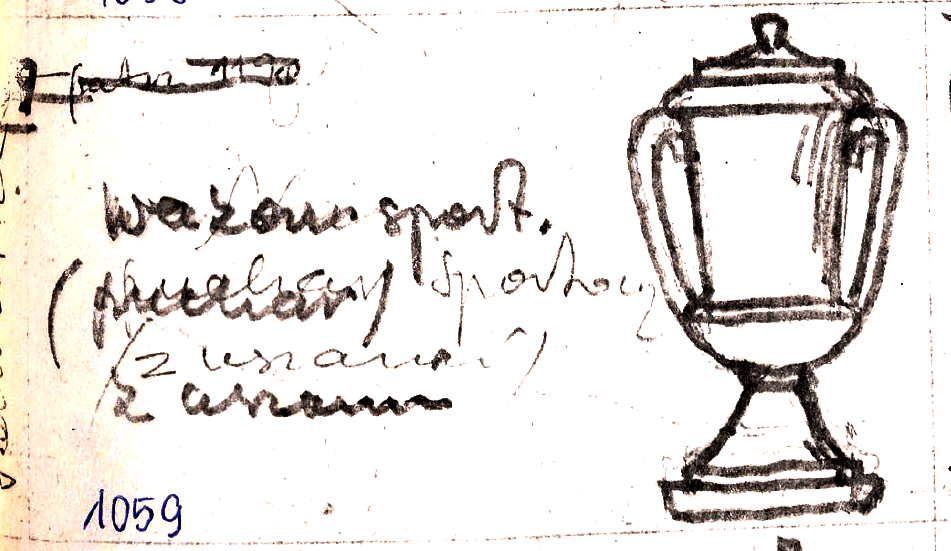 wazon sport.
(puchar) sportowy
(z uszami)
z uszami
1059